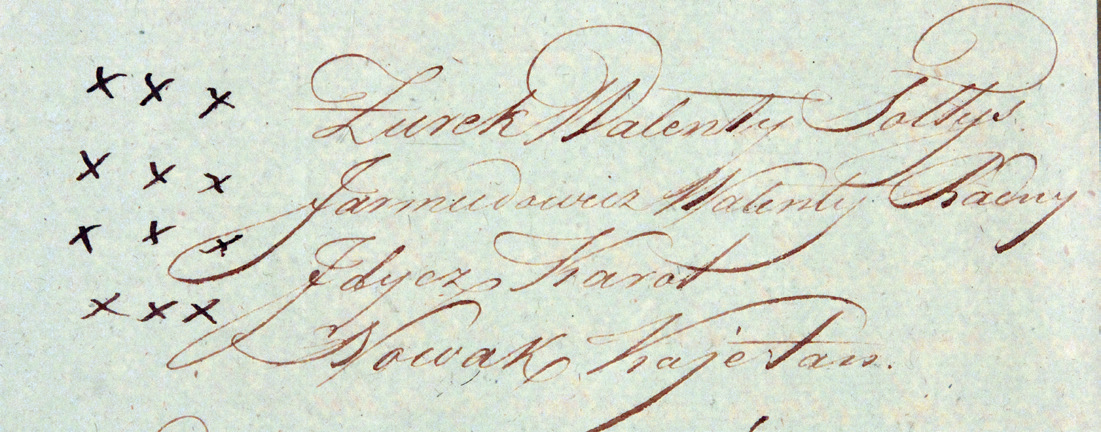 x x x Żurek Walenty Sołtys
x x x Jarmudowicz Walenty Radny
x x x Jdycz Karol
x x x Nowak Kajetan.